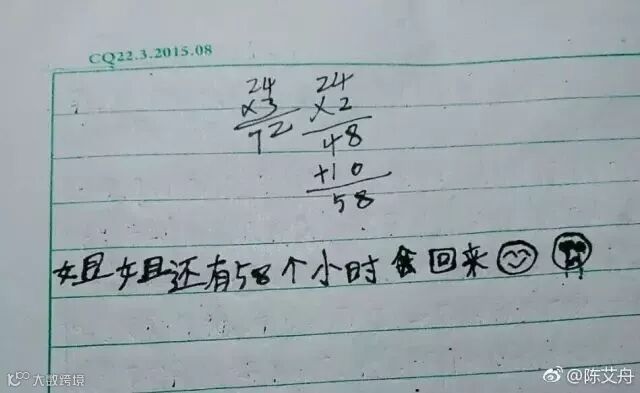 CQ22.3.2015.08
24 24
×3 ×2
72 48
+10
58
姐姐还有58个小时回来
大数跨境
@陈艾舟